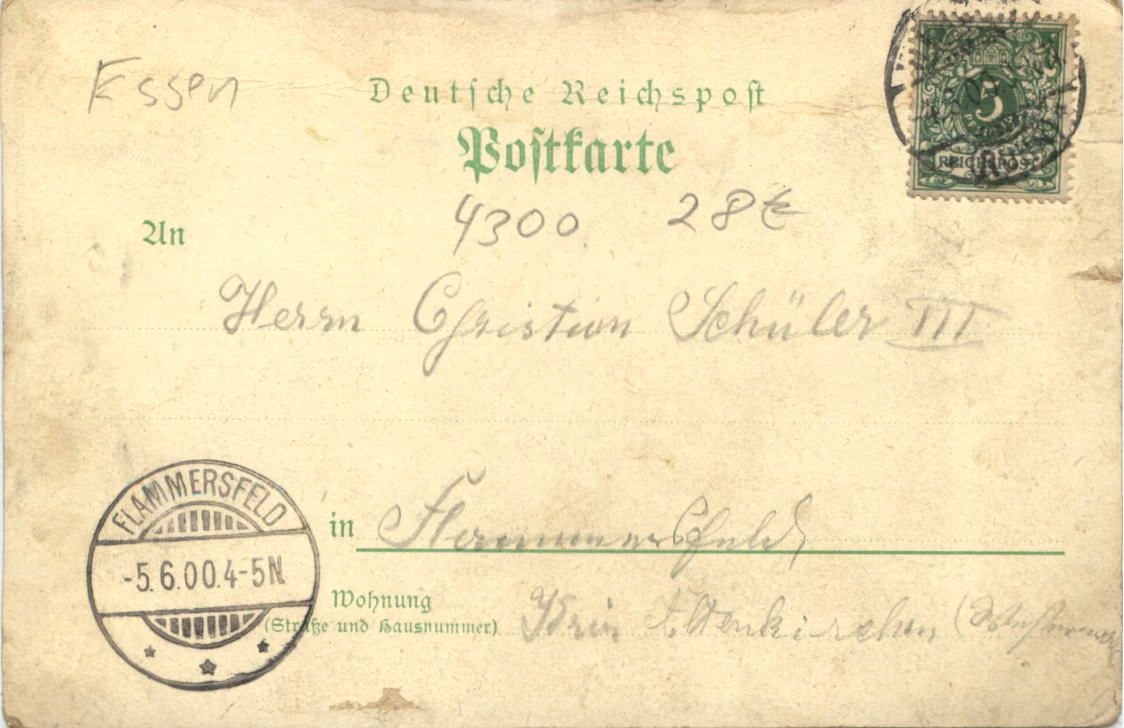 Essen
Deutsche Reichspost
Postkarte
5
REICHSPOST
4300 28€
An
Herrn Christian Schüler III
in Flammersfeld
FLAMMERSFELD
-5.6.00.4-5N.
Wohnung
(Straße und Hausnummer)
Altenkirchen (Westerwald